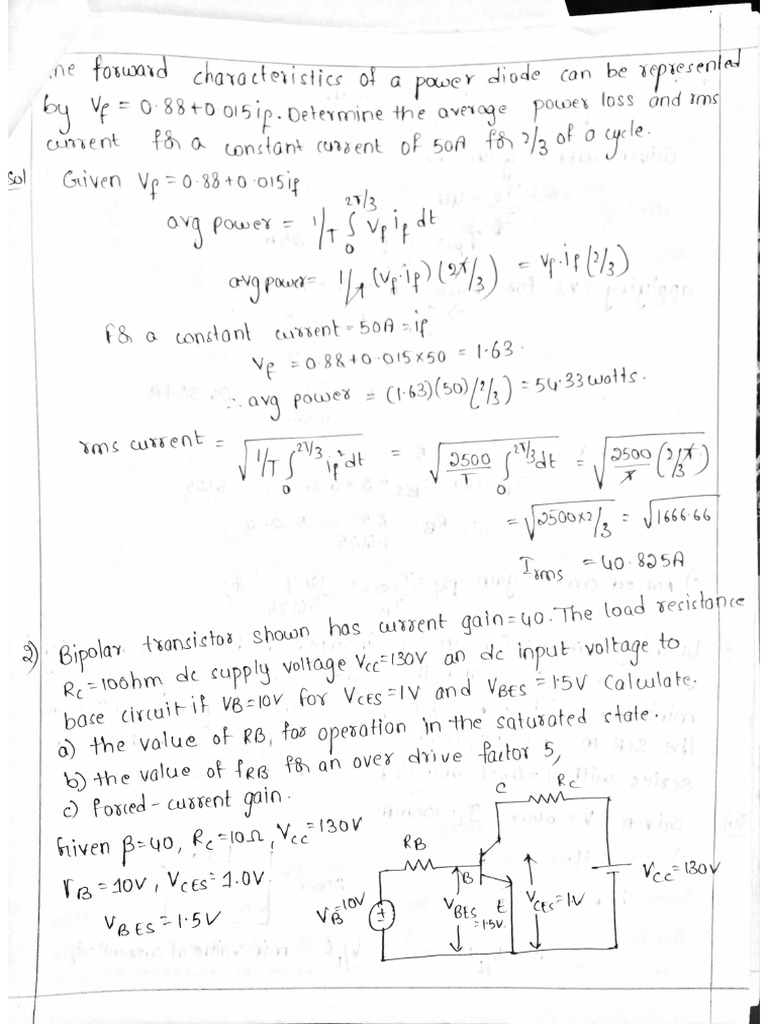 ne forward characteristics of a power diode can be represented
by Vf = 0.88+0.015if. Determine the average power loss and rms
current for a constant current of 50A for 2/3 of a cycle.
Sol Given Vf = 0.88+0.015if
avg power = 1/T ∫₀^(2T/3) Vf if dt
avg power = 1/T (Vf.if) (2T/3) = Vf.if (2/3)
For a constant current = 50A = if
Vf = 0.88+0.015x50 = 1.63.
∴ avg power = (1.63)(50)(2/3) = 54.33 watts.
rms current = √(1/T ∫₀^(2T/3) if² dt) = √(2500/T ∫₀^(2T/3) dt) = √(2500/T (2T/3))
= √(2500x2/3) = √1666.66
Irms = 40.825A
2) Bipolar transistor, shown has current gain=40. The load resistance
Rc=10ohm dc supply voltage Vcc=130V an dc input voltage to
base circuit if VB=10V for VCES=1V and VBES=1.5V Calculate.
a) the value of RB, for operation in the saturated state.
b) the value of fRB for an over drive factor 5,
c) forced-current gain.
Given β=40, Rc=10Ω, Vcc=130V
VB=10V, VCES=1.0V.
VBES=1.5V
C
RC
RB
B
E
VB=10V
VBES
=1.5V
VCES=1V
Vcc=130V